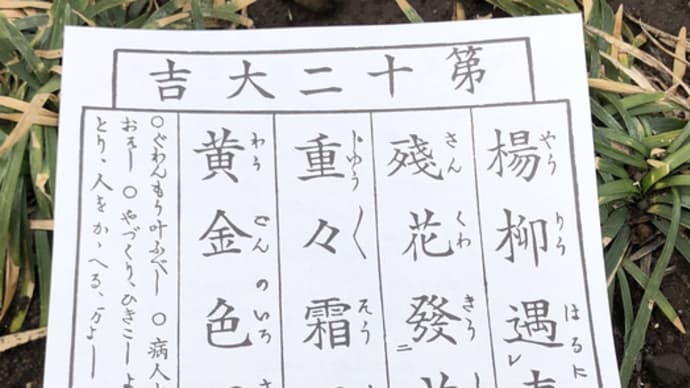 第十二大吉
楊柳遇
やう りう はるに レ
殘花發
さん くわ きう 二
重々霜
ぢゆう 〱 さう
黄金色
わう ごん のいろ
○ぐわんもう叶ふべし ○病人
おそし ○やづくり、ひきこしよ
とり、人をかゝへる、万よし